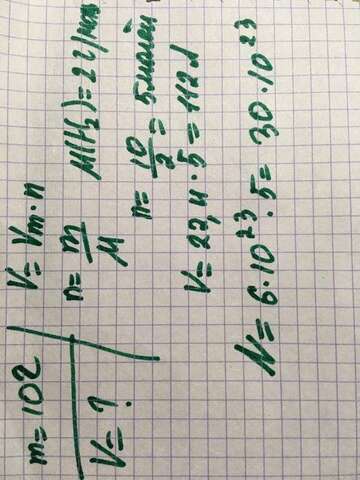 m=10г
V=?
V=Vm·n
n=m/M M(H₂)=2г/моль
n=10/2=5молей
V=22,4·5=112л
N=6·10²³·5=30·10²³